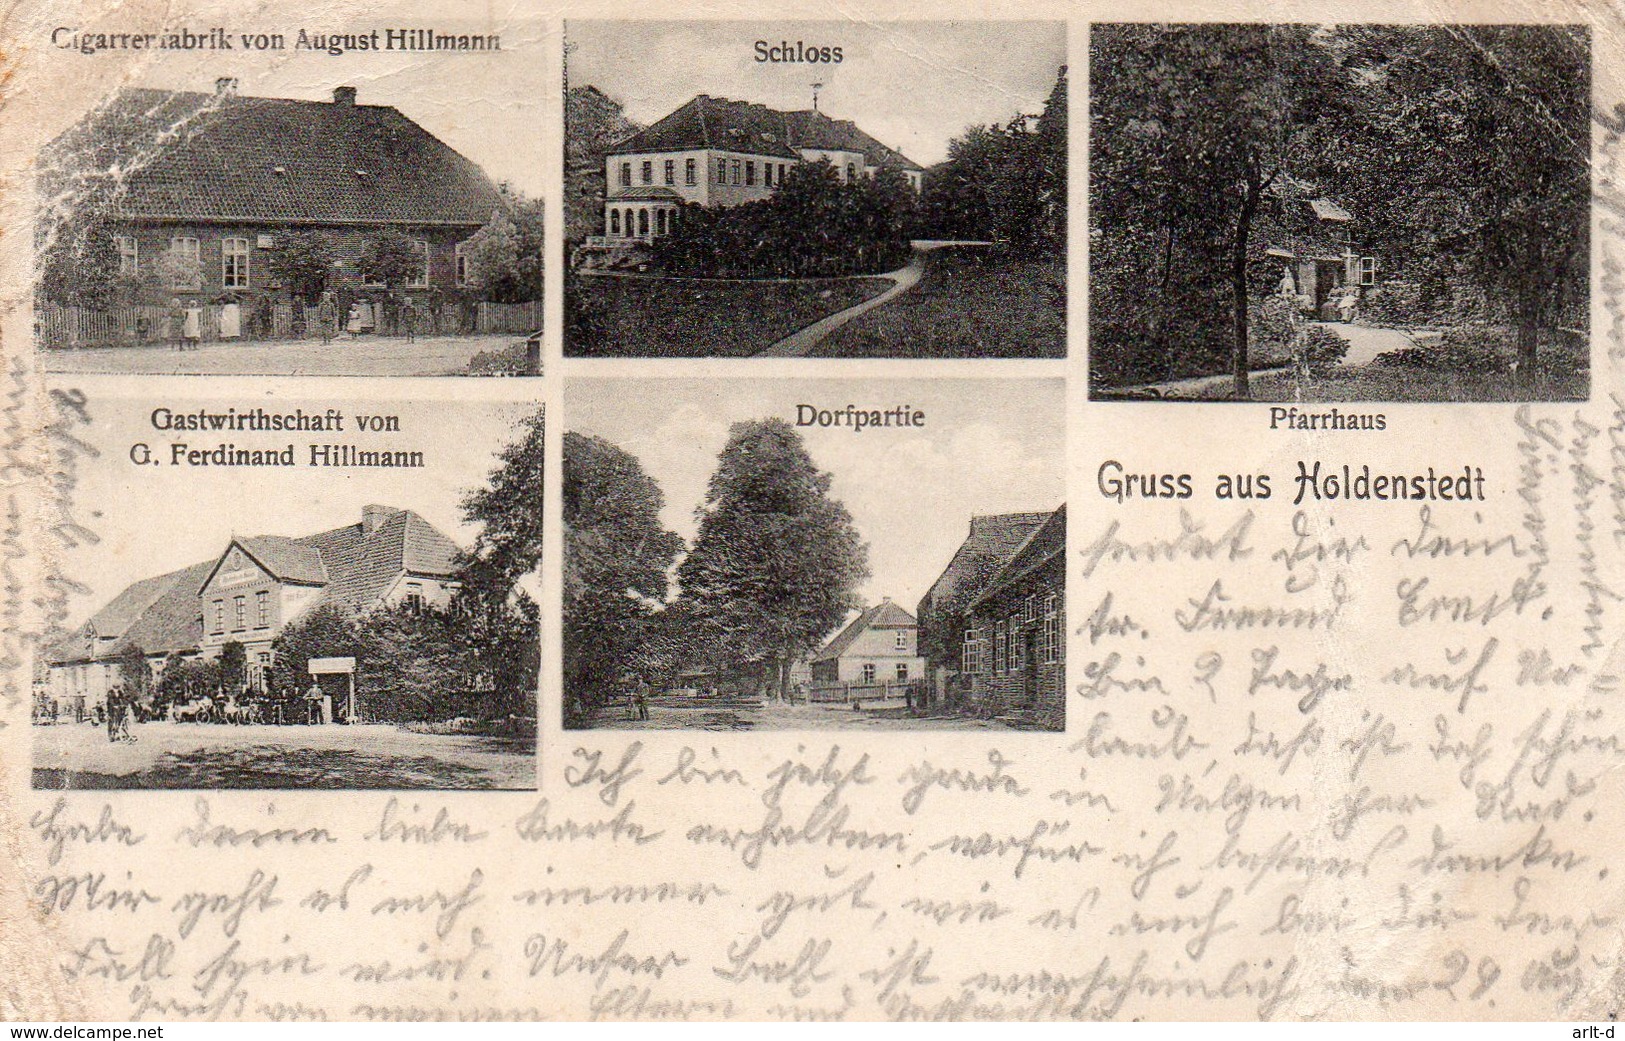 Cigarrenfabrik von August Hillmann
Schloss
Gastwirthschaft von
G. Ferdinand Hillmann
Dorfpartie
Pfarrhaus
Gruss aus Holdenstedt
sendet Dir Dein
tr. Freund Ernst.
Bin 2 Tage auf Ur=
laub, daß ist doch schön
Ich bin jetzt grade in Uelzen per Rad.
Habe deine liebe Karte erhalten, wofür ich bestens danke.
Mir geht es noch immer gut, wie es auch bei Dir der
Fall sein wird. Unser Ball ist warscheinlich den 29. Aug
Gruß von meinen Eltern und Geschwister
Delcampe.net
arlt-d